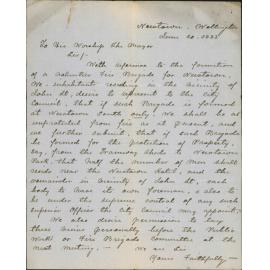 Newtown, Wellington
June 20. 1888
To His Worship the Mayor
Sir/-
With reference to the formation
of a Volunteer Fire Brigade for Newtown,
We inhabitants residing in the vicinity of
John St, desire to represent to the City
Council, that if such Brigade is formed
at Newtown South only, We shall be as
unprotected from fire as at present, and
we further submit, that if such Brigade
be formed for the protection of Property,
say, from the Tramway sheds to Newtown
Park, that half the number of Men shall
reside near the Newtown Hotel, and the
remainder in vicinity of John St, each
body to have its own foreman, & also to
be under the supreme control of any such
superior Officer the City Council may appoint.
We also desire permission to lay
these views personally before the Public
Works or Fire Brigade Committee at the
next Meeting, - We are Sir
Yours Faithfully